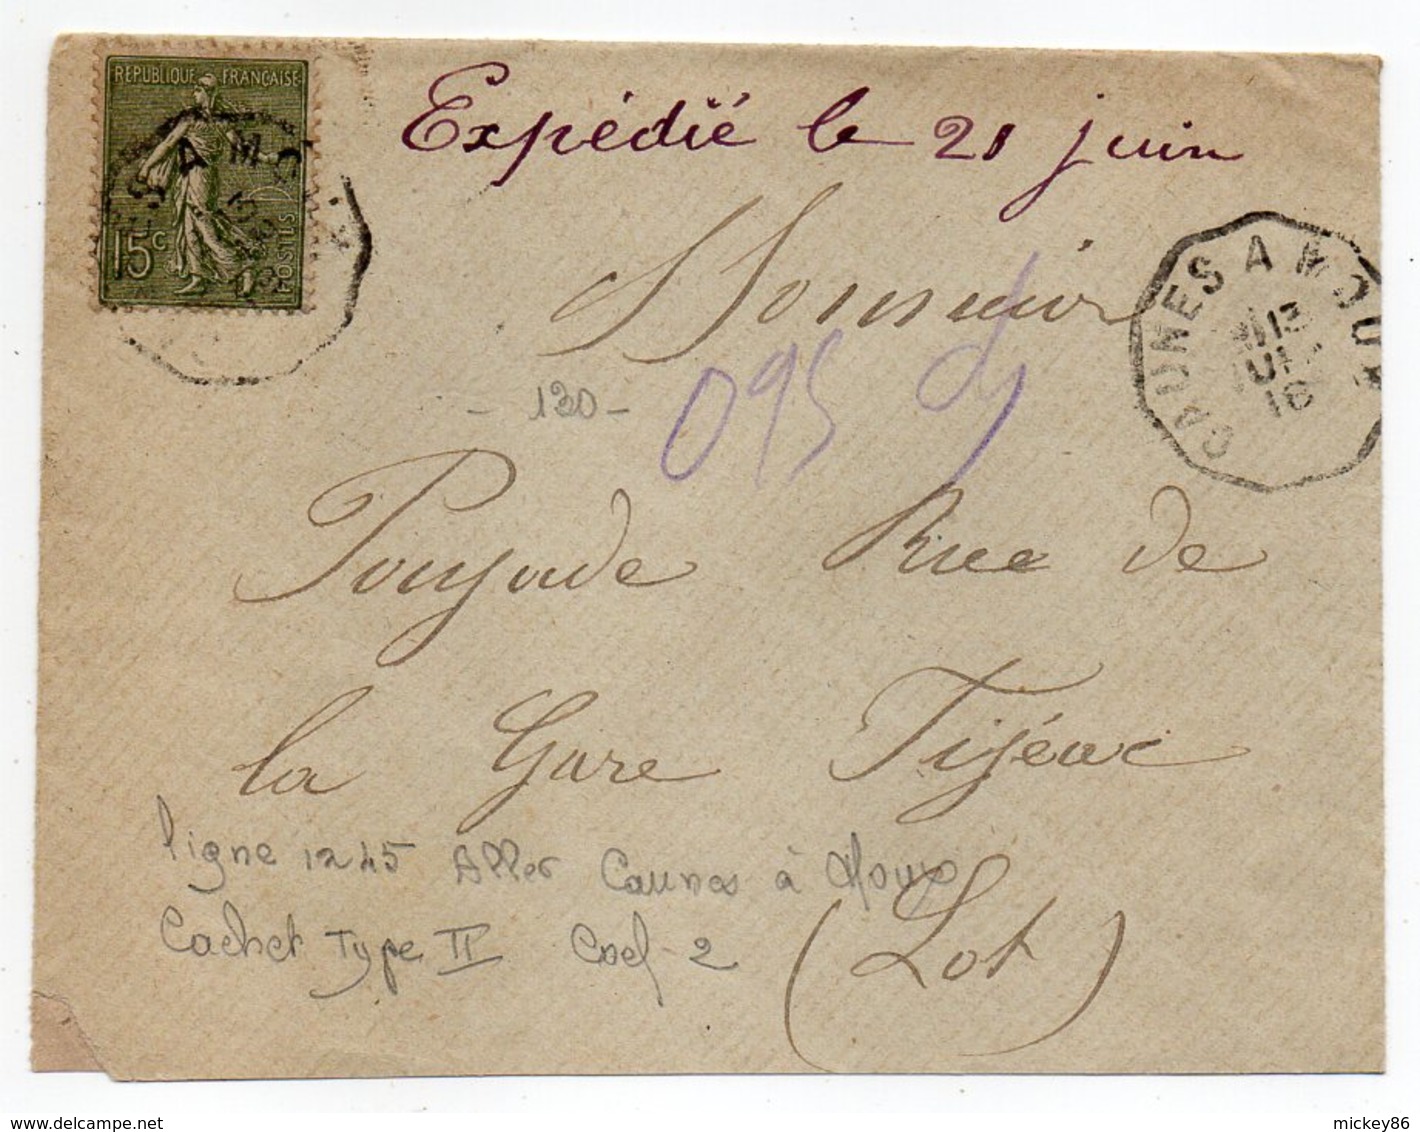 REPUBLIQUE FRANÇAISE
15c POSTES
Expédié le 21 juin
CAUNES A MOUX
13
JUI
16
Monsieur
- 120 -
095
Poujade Rue de
la Gare Figéac
(Lot)
ligne 1245 Aller Caunes à Moux
Cachet Type II Coef-2
mickey86